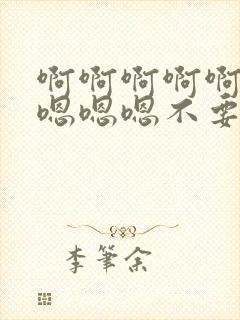 啊啊啊啊啊
嗯嗯嗯不要
李筆余